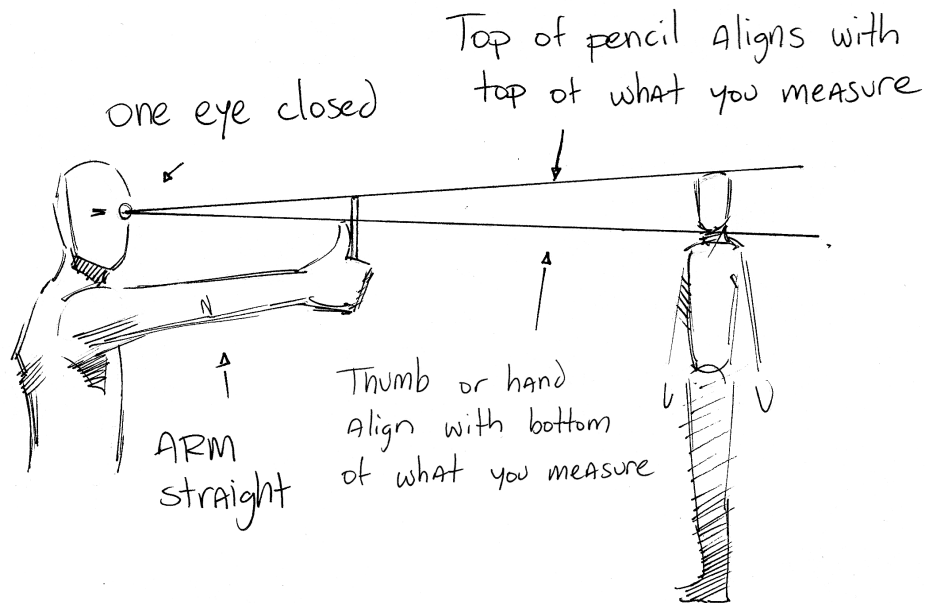 Top of pencil Aligns with
top of what you measure
one eye closed
Thumb or hand
Align with bottom
of what you measure
ARM
straight